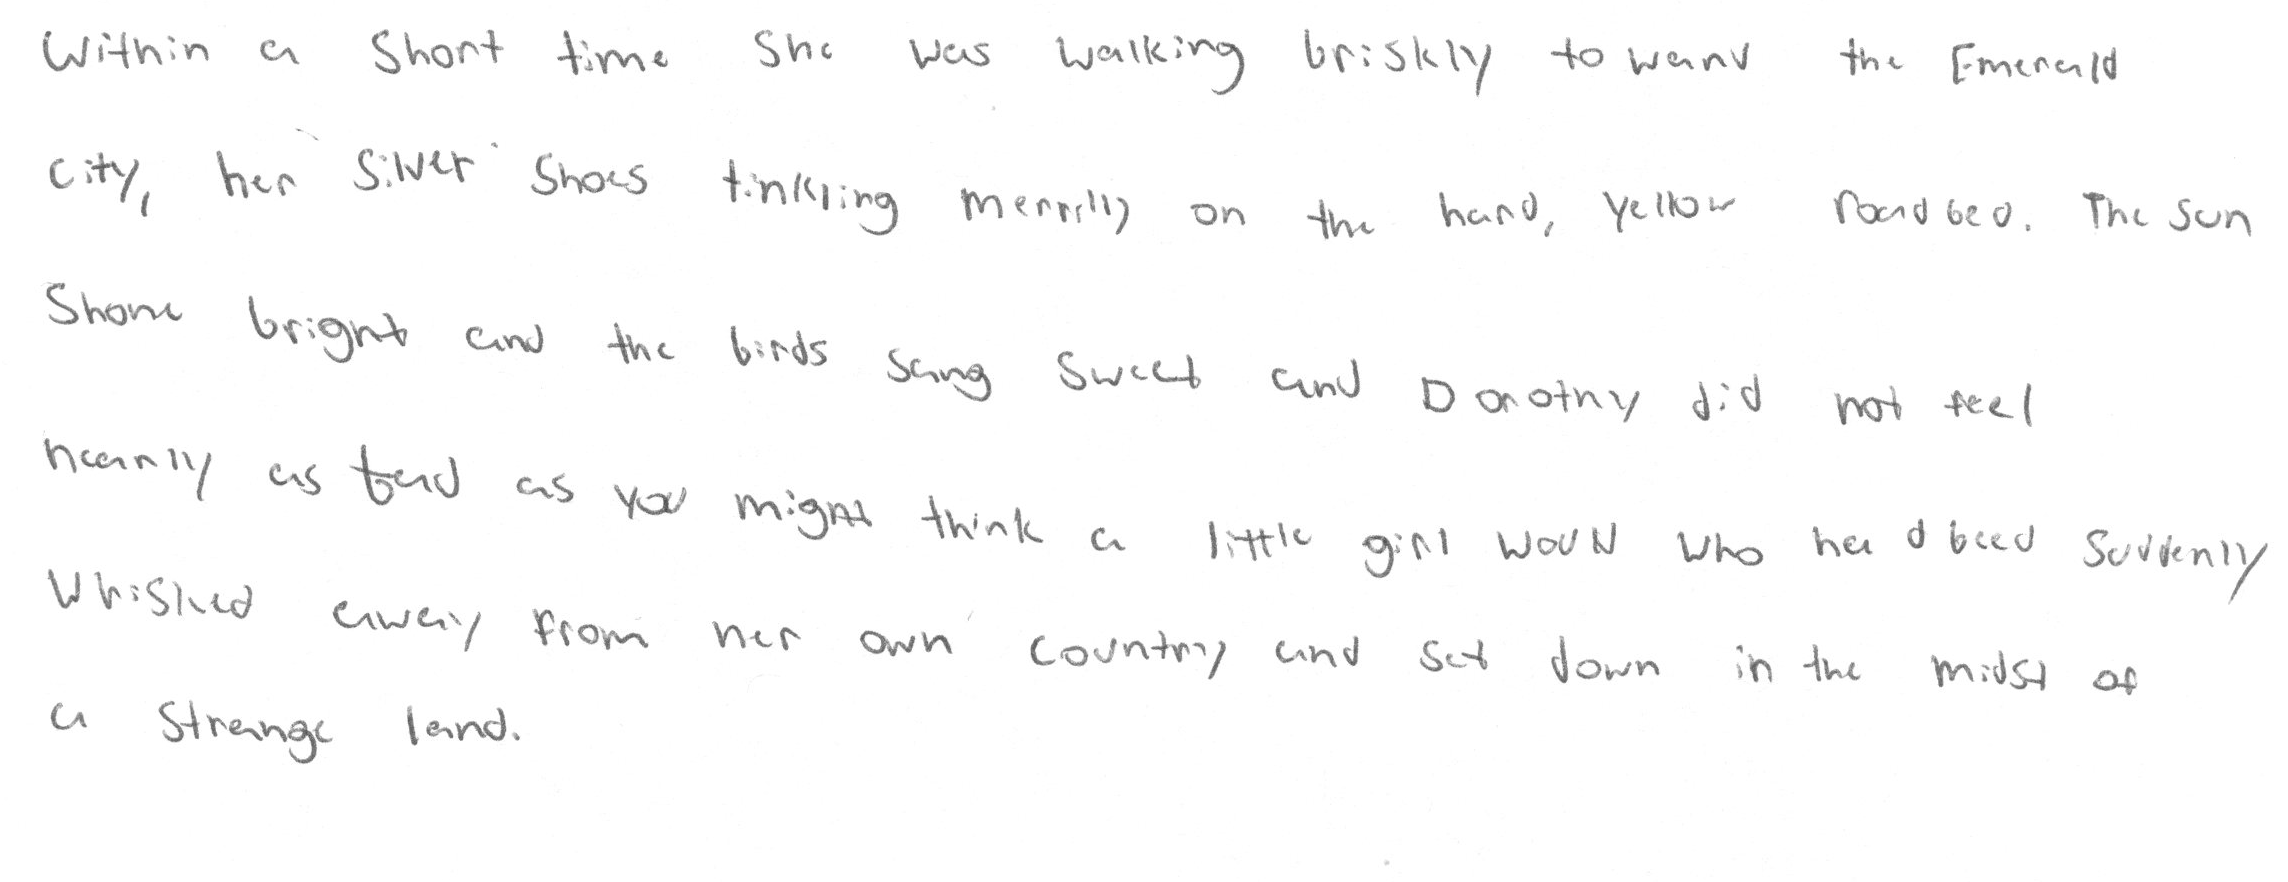 Within a short time she was walking briskly toward the Emerald
City, her Silver Shoes tinkling merrily on the hard, yellow roadbed. The sun
shone bright and the birds sang sweet and Dorothy did not feel
nearly as bad as you might think a little girl would who had beed suddenly
whisked away from her own country and set down in the midst of
a strange land.